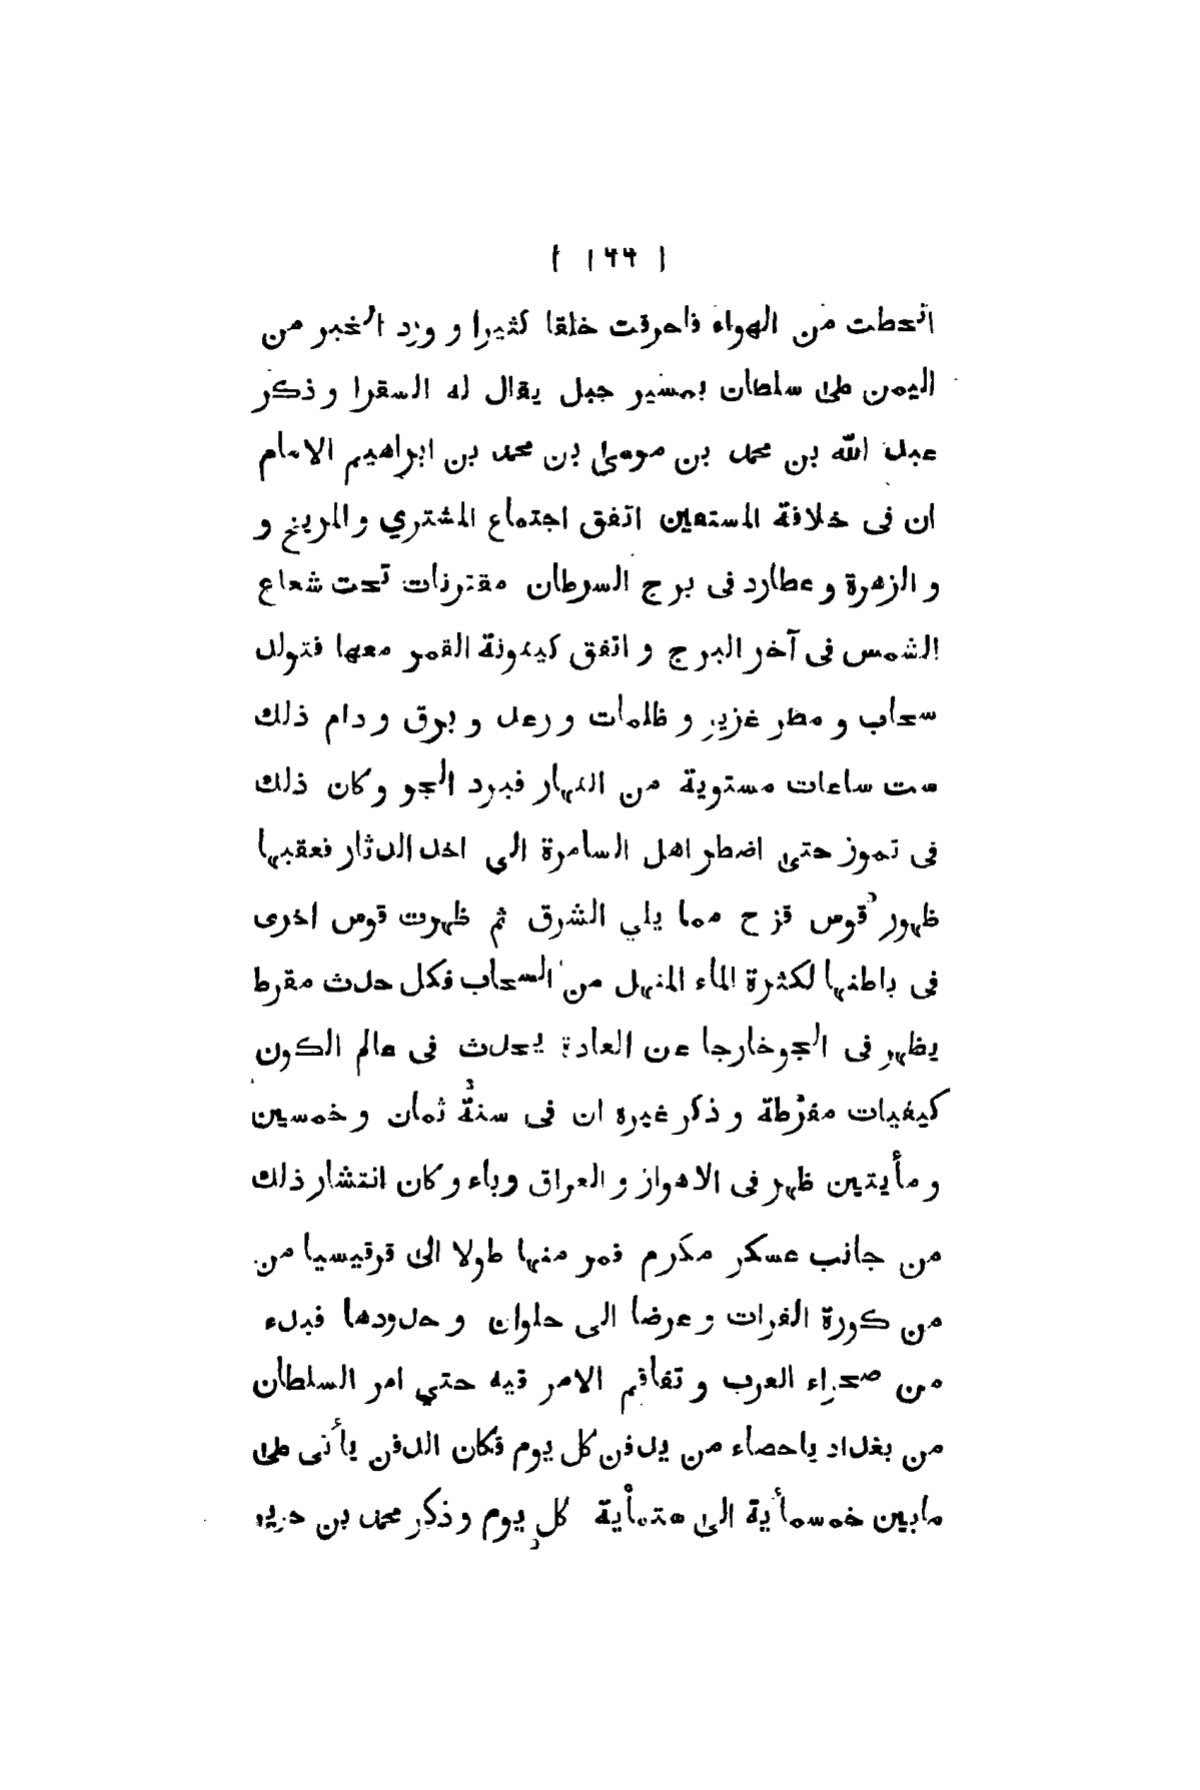 ( ١٦٦ )
انحطت من الهواء فاحرقت خلقا كثيرا و ورد الخبر من
اليمن على سلطان بمسير جبل يقال له السقرا و ذكر
عبد الله بن محمد بن موسى بن محمد بن ابراهيم الامام
ان فى خلافة المستعين اتفق اجتماع المشتري و المريخ و
و الزهرة و عطارد فى برج السرطان مقترنات تحت شعاع
الشمس فى آخر البرج و اتفق كينونة القمر معها فتولد
سحاب و مطر غزير و ظلمات و رعد و برق و دام ذلك
ست ساعات مستوية من النهار فبرد الجو و كان ذلك
فى تموز حتى اضطر اهل السامرة الي اخذ الدثار فعقبها
ظهور قوس قزح مما يلي الشرق ثم ظهرت قوس اخرى
فى باطنها لكثرة الماء المنهل من السحاب فكل حدث مقرط
يظهر فى الجو خارجا عن العادة يحدث فى عالم الكون
كيفيات مفرطة و ذكر غيره ان فى سنة ثمان و خمسين
و مأيتين ظهر فى الاهواز و العراق وباء و كان انتشار ذلك
من جانب عسكر مكرم فمر منها طولا الى قرقيسيا من
من كورة الفرات و عرضا الى حلوان و حدودها فبدء
من صحراء العرب و تفاقم الامر فيه حتي امر السلطان
من بغداد باحصاء من يدفن كل يوم فكان الدفن يأتى على
مابين خمسمأية الى ستمأية كل يوم و ذكر محمد بن جرير